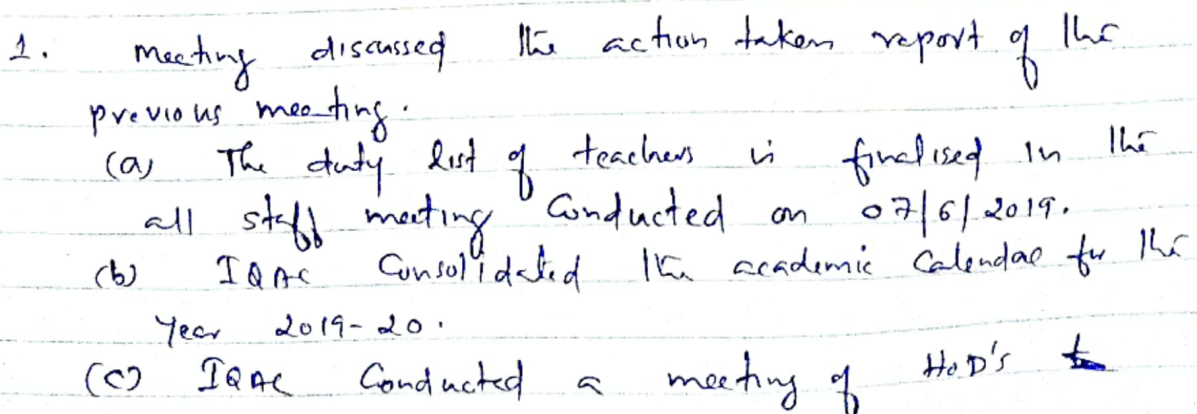 1. Meeting discussed the action taken report of the
previous meeting.
(a) The duty list of teachers is finalised in the
all staff meeting Conducted on 07/6/2019.
(b) IQAC Consolidated the academic Calendar for the
Year 2019-20.
(c) IQAC Conducted a meeting of HoD's to